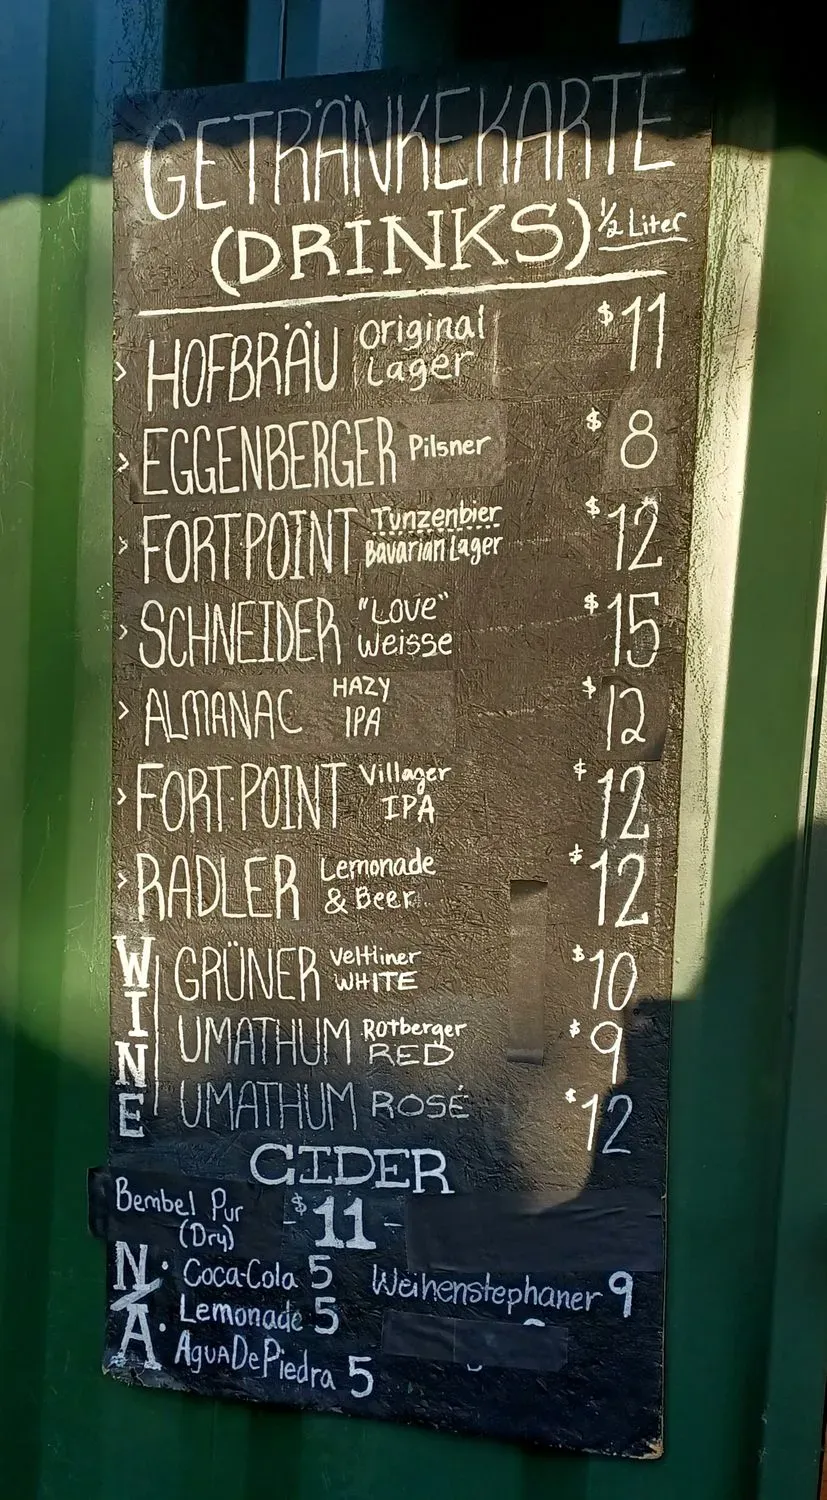 GETRÄNKEKARTE
(DRINKS) 1/2 Liter
> HOFBRÄU Original Lager $11
> EGGENBERGER Pilsner $8
> FORT POINT Tunzenbier Bavarian Lager $12
> SCHNEIDER "Love" Weisse $15
> ALMANAC HAZY IPA $12
> FORT·POINT Villager IPA $12
> RADLER Lemonade & Beer $12
WINE
GRÜNER Veltliner WHITE $10
UMATHUM Rotberger RED $9
UMATHUM ROSÉ $12
CIDER
Bembel Pur (Dry) -$11-
N/A
· Coca-Cola 5
Weihenstephaner 9
· Lemonade 5
· AguaDePiedra 5